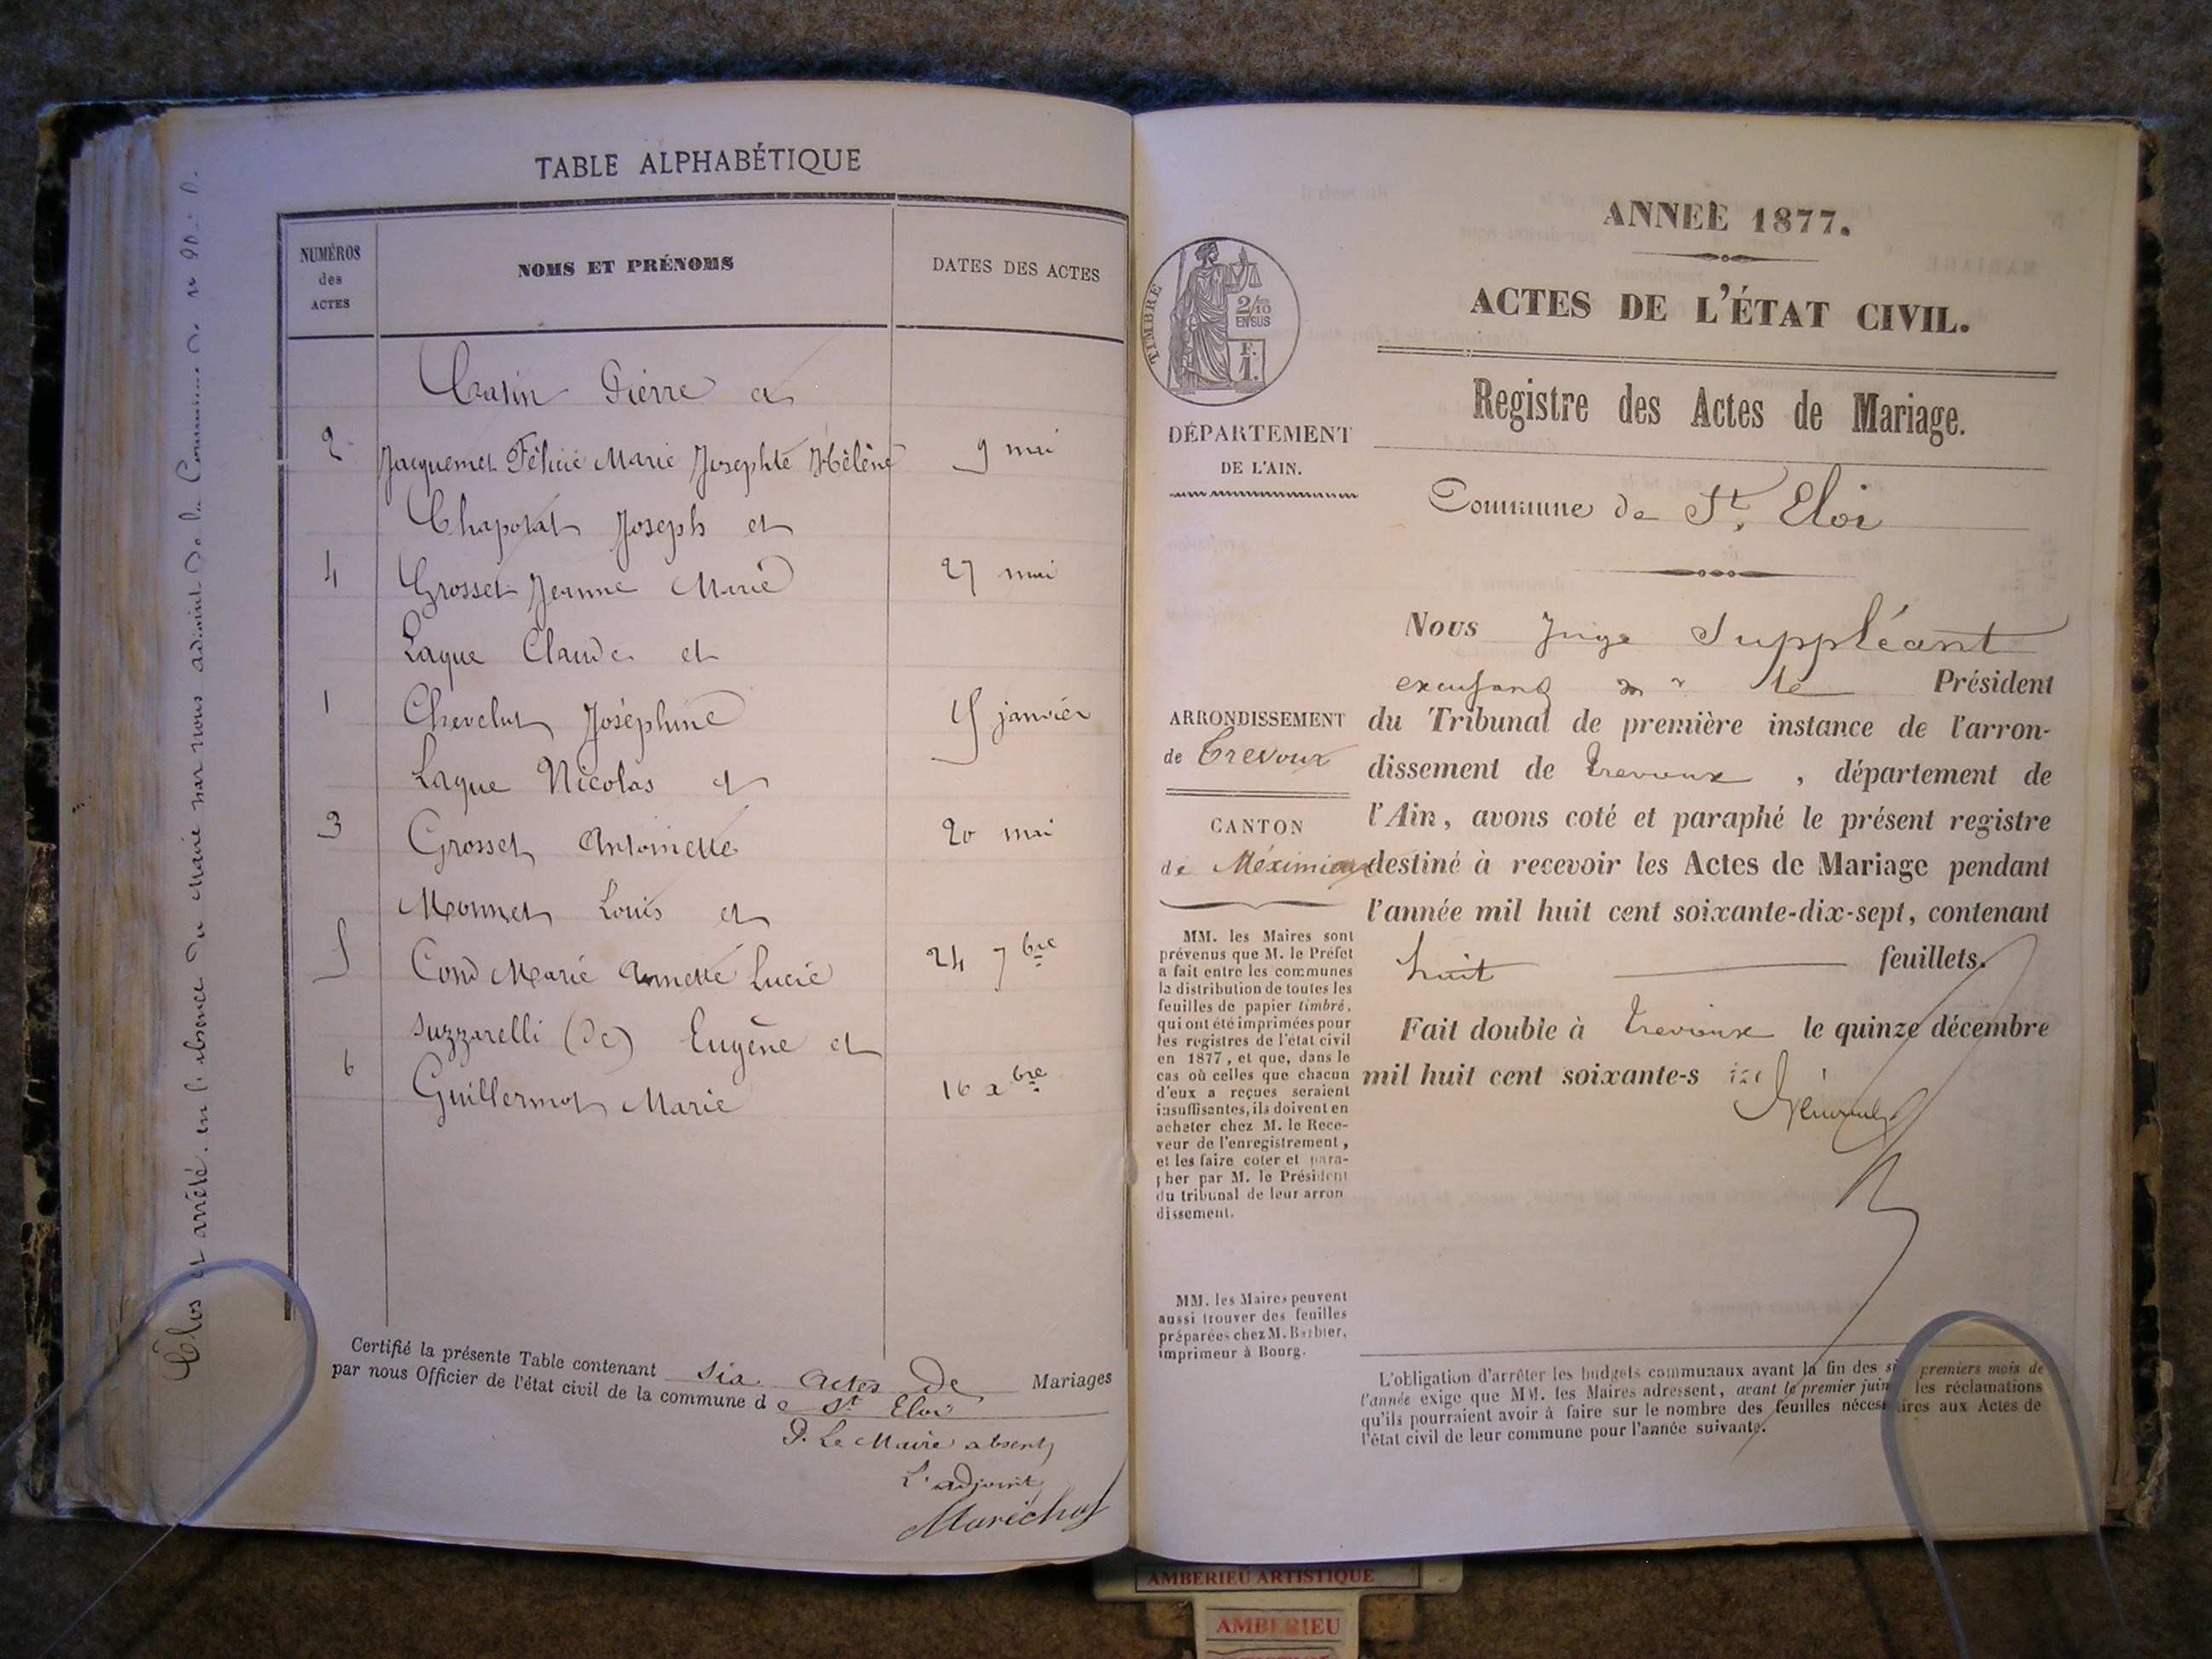 TABLE ALPHABÉTIQUE
NUMÉROS
des
ACTES
NOMS ET PRÉNOMS
DATES DES ACTES
Pierre et
2 Jacquemet Félicie Marie Josephte Hélène 9 mai
Joseph et
4 Grosset Jeanne Marie 27 mai
Laque Claude et
1 Chevelut Joséphine 15 janvier
Laque Nicolas et
3 Grosset Antoinette 20 mai
Monnet Louis et
5 Cond Marie Annette Lucie 24 7bre
Suzzarelli (de) Eugène et
6 Guillermot Marie 16 xbre
Certifié la présente Table contenant six actes de Mariages
par nous Officier de l'état civil de la commune de St Eloi
P. Le Maire absent
L'adjoint
Maréchal
Clos et arrêté en l'absence du Maire par nous adjoint de la Commune de
ANNEE 1877.
ACTES DE L'ÉTAT CIVIL.
Registre des Actes de Mariage.
Commune de St. Eloi
TIMBRE
2/10
EN SUS
F.
1.
DÉPARTEMENT
DE L'AIN.
ARRONDISSEMENT
de Trevoux
CANTON
de Méximieux
MM. les Maires sont
prévenus que M. le Préfet
a fait entre les communes
la distribution de toutes les
feuilles de papier timbré,
qui ont été imprimées pour
les registres de l'état civil
en 1877, et que, dans le
cas où celles que chacun
d'eux a reçues seraient
insuffisantes, ils doivent en
acheter chez M. le Rece-
veur de l'enregistrement,
et les faire coter et para-
pher par M. le Président
du tribunal de leur arron
dissement.
MM. les Maires peuvent
aussi trouver des feuilles
préparées chez M. Barbier,
imprimeur à Bourg.
Nous Juge Suppléant
le Président
du Tribunal de première instance de l'arron-
dissement de Trevoux, département de
l'Ain, avons coté et paraphé le présent registre
destiné à recevoir les Actes de Mariage pendant
l'année mil huit cent soixante-dix-sept, contenant
huit feuillets.
Fait double à Trevoux le quinze décembre
mil huit cent soixante-s
L'obligation d'arrêter les budgets communaux avant la fin des six premiers mois de
l'année exige que MM. les Maires adressent, avant le premier juin, les réclamations
qu'ils pourraient avoir à faire sur le nombre des feuilles nécessaires aux Actes de
l'état civil de leur commune pour l'année suivante.
AMBERIEU ARTISTIQUE
AMBERIEU